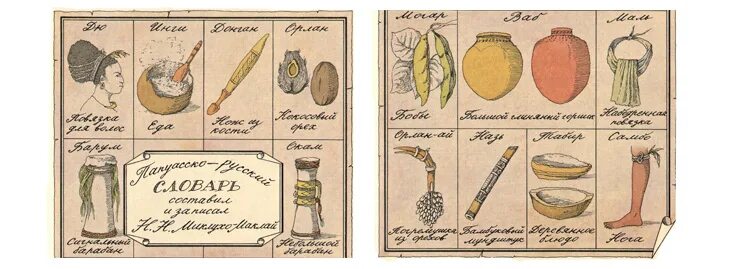 Дю
Повязка
для волос
Инги
Еда
Донган
Нож из
кости
Орлан
Кокосовый
орех
Барум
Сигнальный
барабан
Папуасско-Русский
СЛОВАРЬ
составил
и записал
Н.Н. Миклухо-Маклай
Окам
Небольшой
барабан
Могар
Бобы
Ваб
Большой глиняный горшок
Маль
Набедренная
повязка
Орлан-ай
Погремушка
из орехов
Назе
Бамбуковый
мундштук
Табир
Деревянное
блюдо
Самбо
Нога